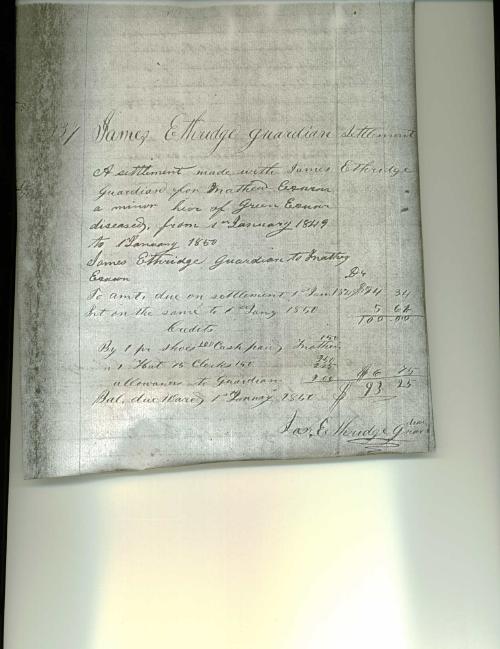 James Ethridge guardian settlement
A settlement made with James Ethridge
guardian for Mathew Exum
a minor heir of Green Exum
diseased, from 1st January 1849
to 1 January 1850
James Ethridge guardian to Mathew
Exum Dr
To amt. due on settlement 1st Jan 1849 $94 34
Int on the same to 1st Jany 1850 5 66
100 00
Credits
By 1 pr shoes Cash paid Mathew
1 Hat 75 Clerks 50
allowance to Guardian 2 00 $6 75
Bal. due Ward 1st January 1850 $ 93 25
Jas. Ethridge